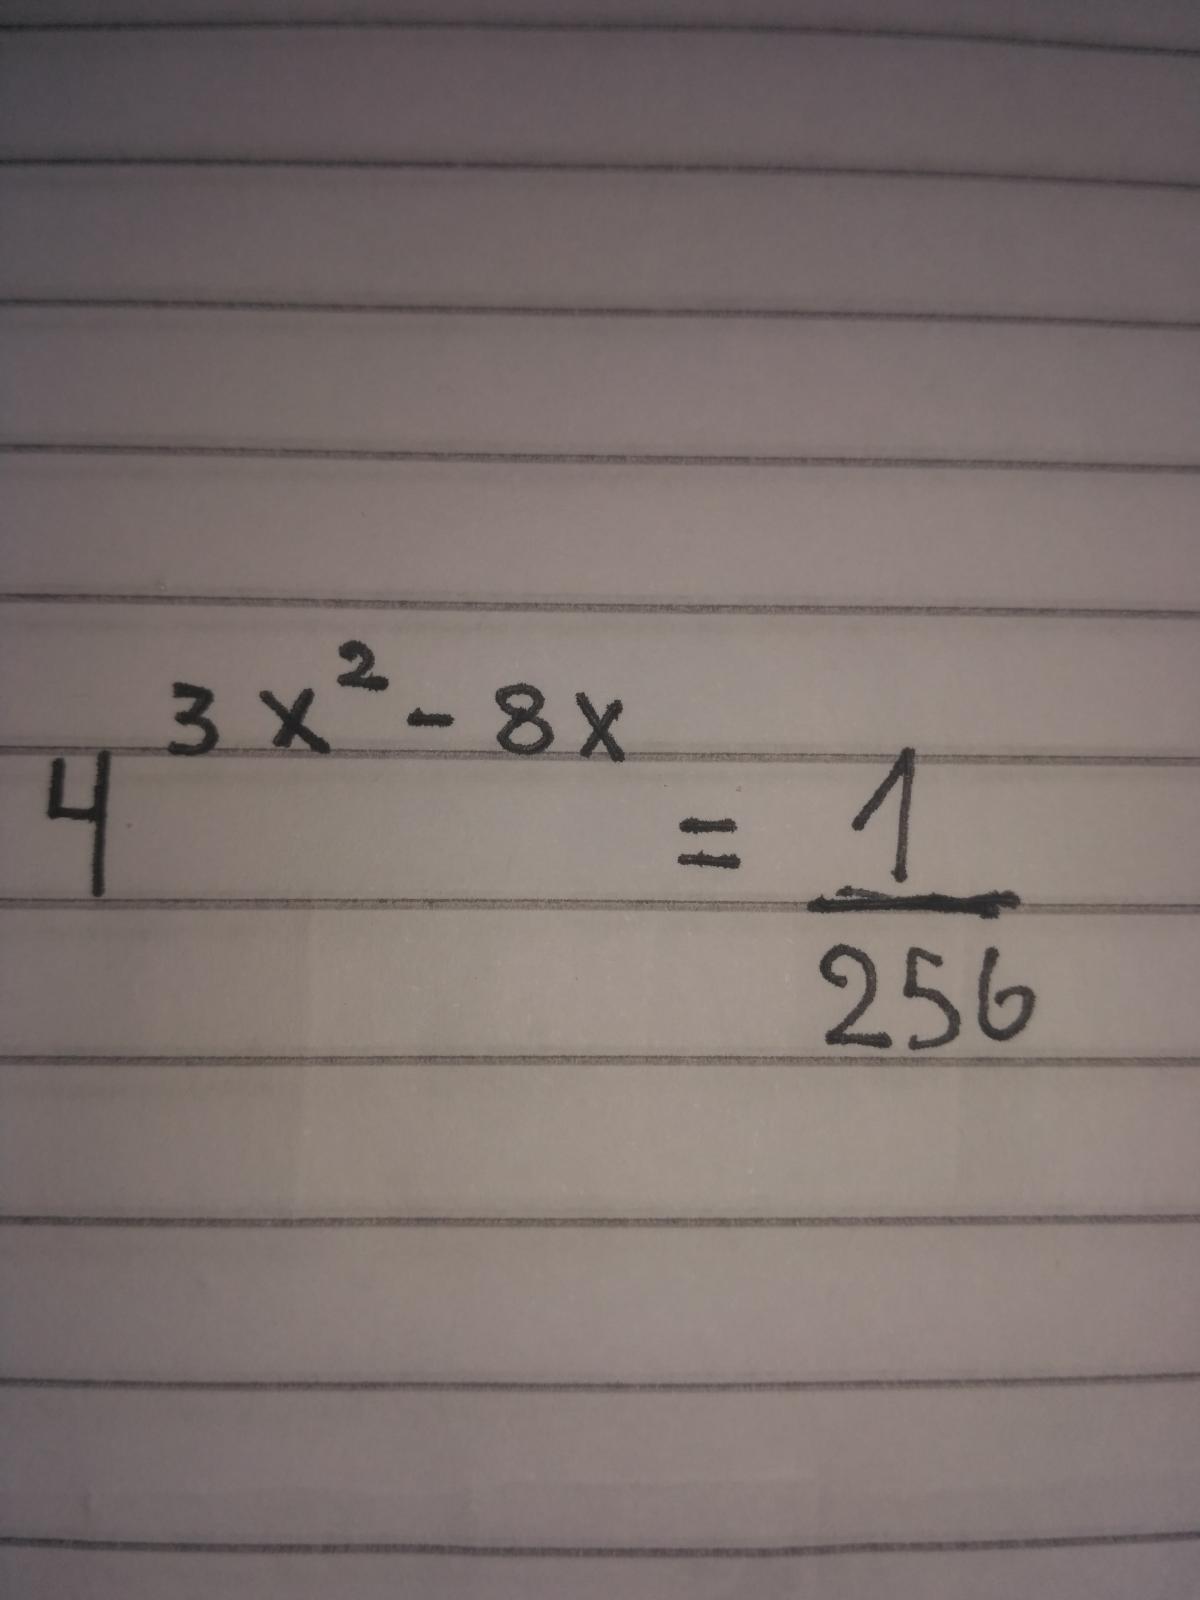 4^{3x^2 - 8x} = \frac{1}{256}